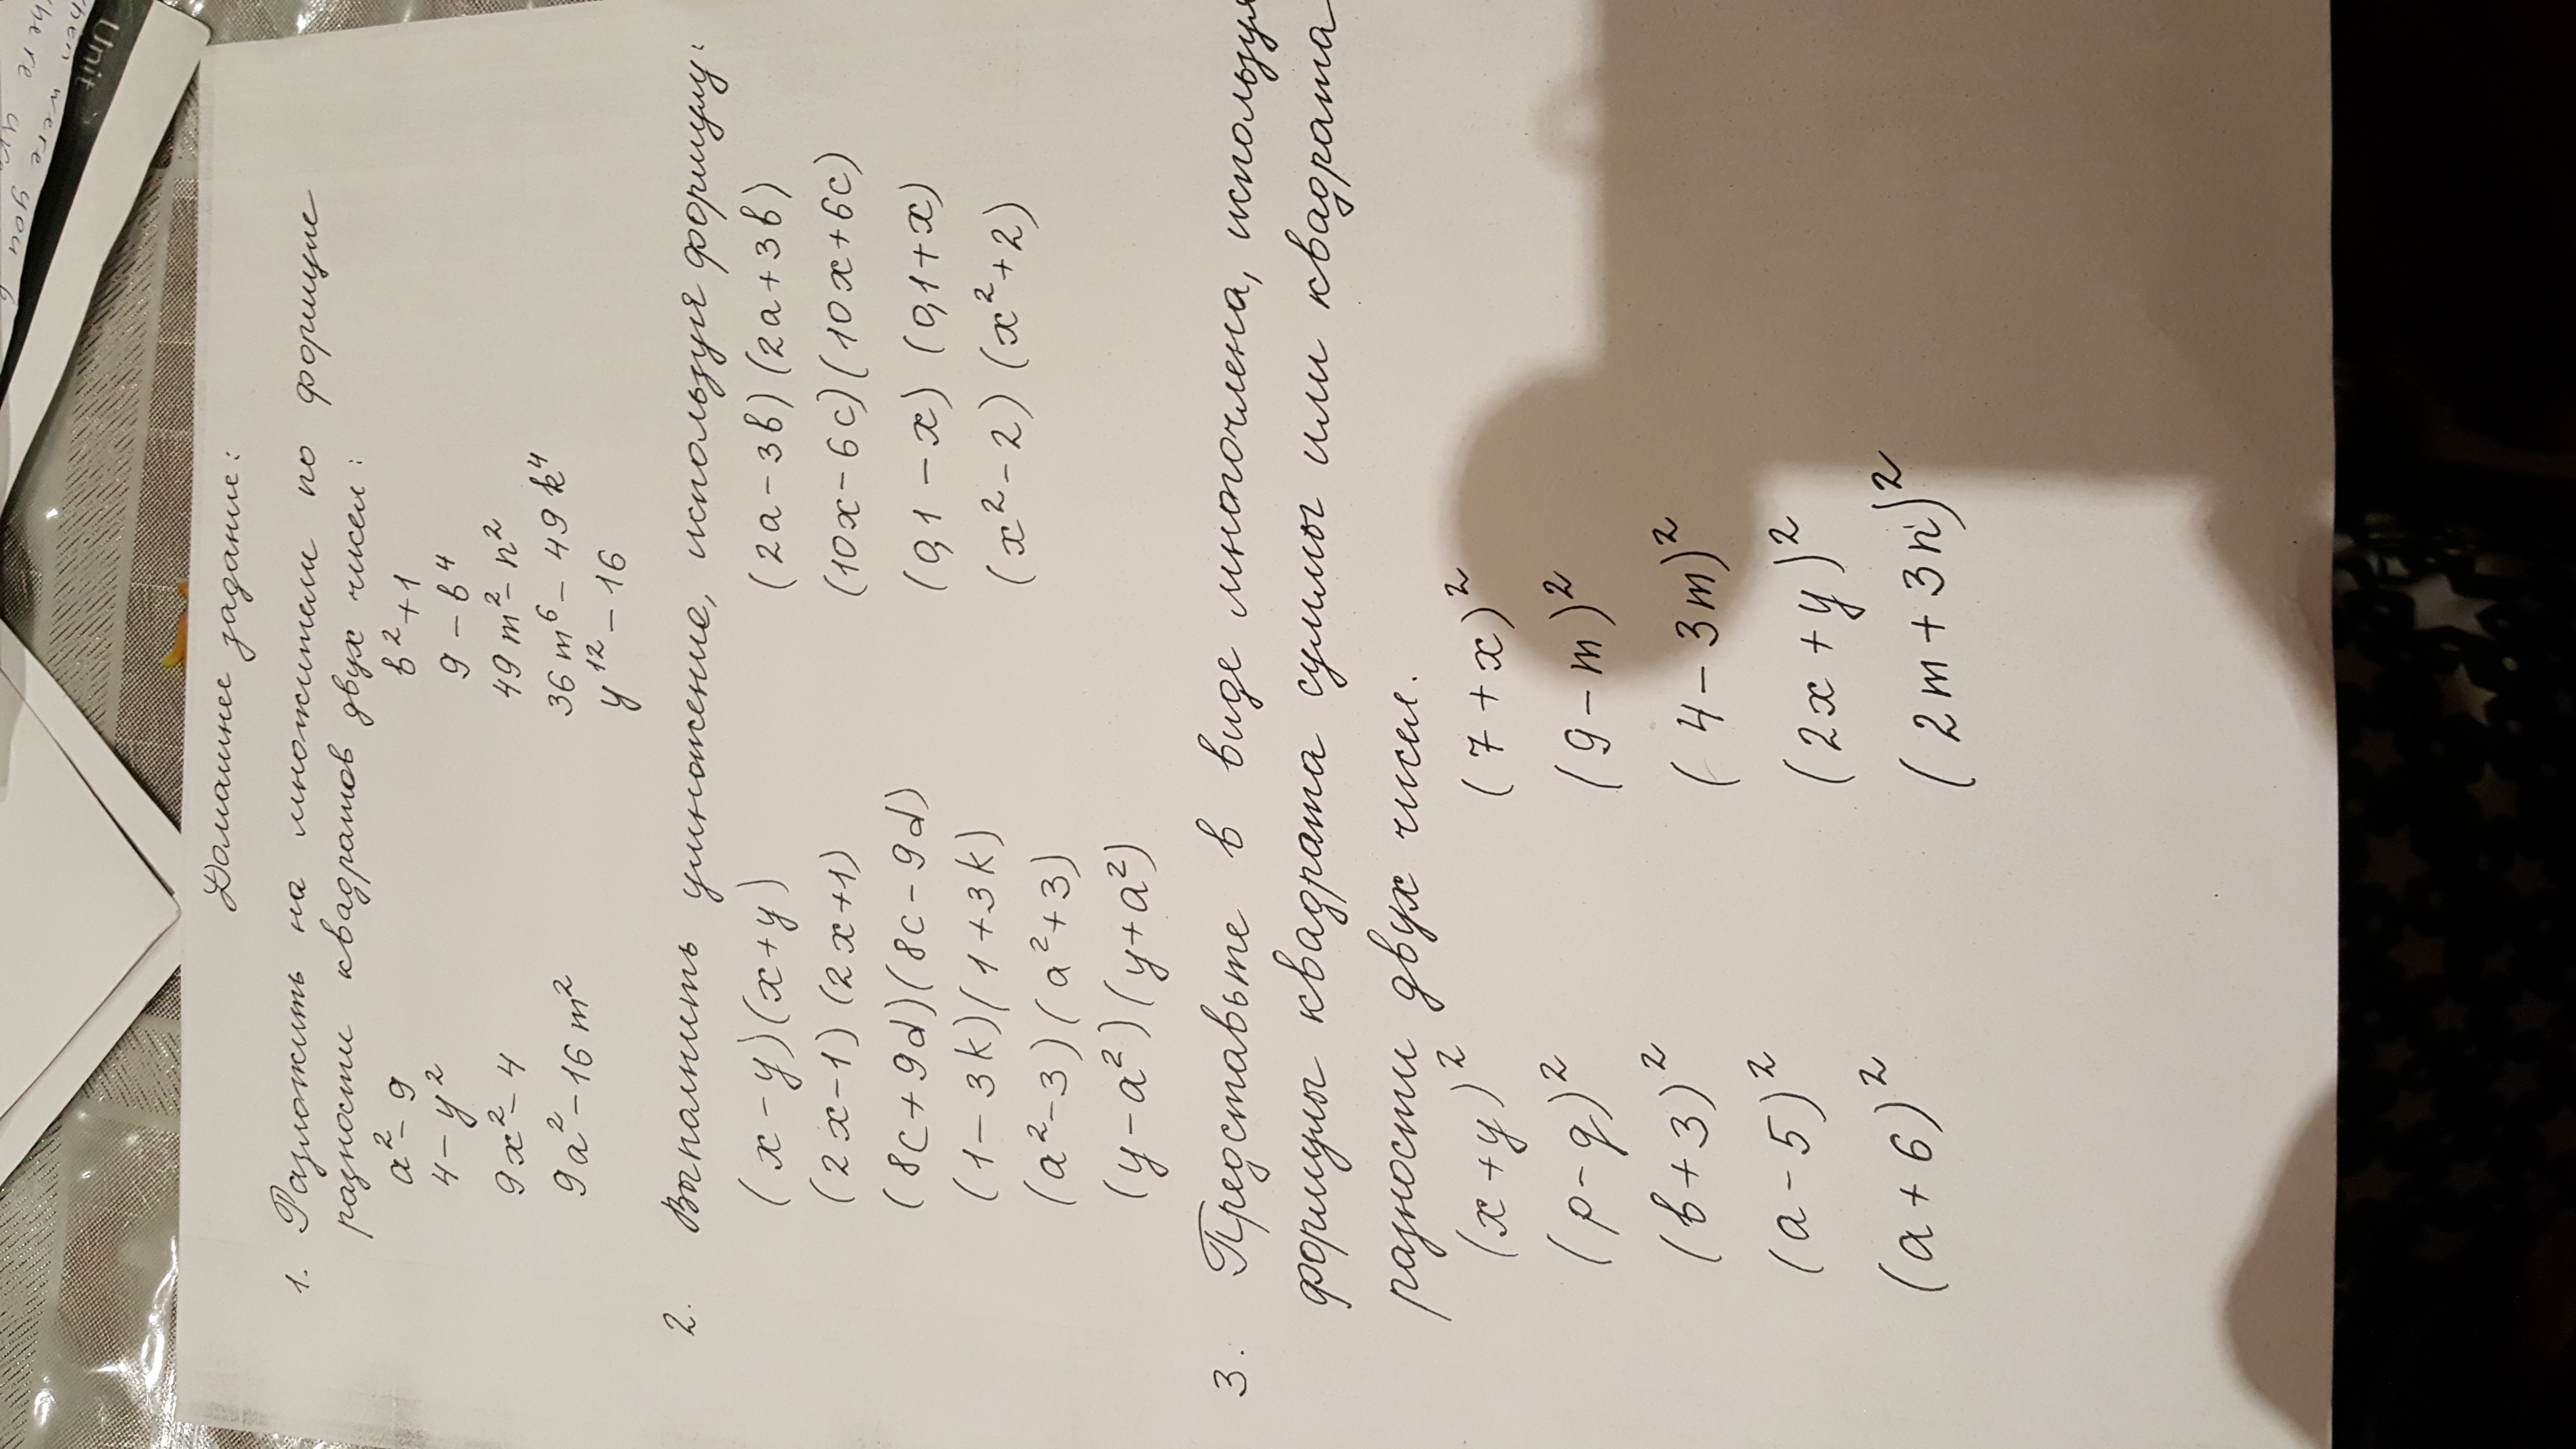 Домашнее задание:
1. Разложить на множители по формуле
разности квадратов двух чисел:
a² - 9 b² + 1
4 - y² 9 - b⁴
9x² - 4 49m² - n²
9a² - 16m² 36m⁶ - 49k⁴
y¹² - 16
2. Выполнить умножение, используя формулу:
(x - y)(x + y) (2a - 3b)(2a + 3b)
(2x - 1)(2x + 1) (10x - 6c)(10x + 6c)
(8c + 9d)(8c - 9d) (0,1 - x)(0,1 + x)
(1 - 3k)(1 + 3k) (x² - 2)(x² + 2)
(a² - 3)(a² + 3)
(y - a²)(y + a²)
3. Представьте в виде многочлена, используя
формулы квадрата суммы или квадрата
разности двух чисел.
(x + y)² (7 + x)²
(p - q)² (9 - m)²
(b + 3)² (4 - 3m)²
(a - 5)² (2x + y)²
(a + 6)² (2m + 3n)²
Unit
where you